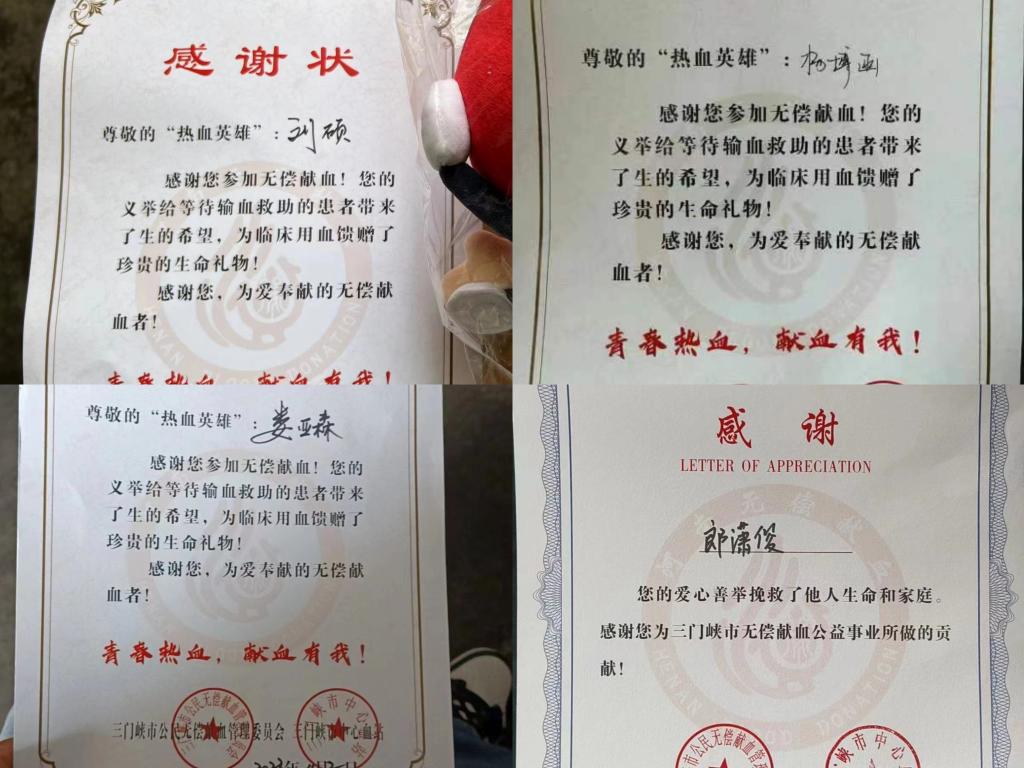 感谢状
尊敬的“热血英雄”：刘硕
感谢您参加无偿献血！您的
义举给等待输血救助的患者带来
了生的希望，为临床用血馈赠了
珍贵的生命礼物！
感谢您，为爱奉献的无偿献
血者！
青春热血，献血有我！
尊敬的“热血英雄”：杨博涵
感谢您参加无偿献血！您的
义举给等待输血救助的患者带来
了生的希望，为临床用血馈赠了
珍贵的生命礼物！
感谢您，为爱奉献的无偿献
血者！
青春热血，献血有我！
尊敬的“热血英雄”：娄亚森
感谢您参加无偿献血！您的
义举给等待输血救助的患者带来
了生的希望，为临床用血馈赠了
珍贵的生命礼物！
感谢您，为爱奉献的无偿献
血者！
青春热血，献血有我！
三门峡市公民无偿献血管理委员会 三门峡市中心血站
感谢
LETTER OF APPRECIATION
郎潇俊
您的爱心善举挽救了他人生命和家庭。
感谢您为三门峡市无偿献血公益事业所做的贡
献！